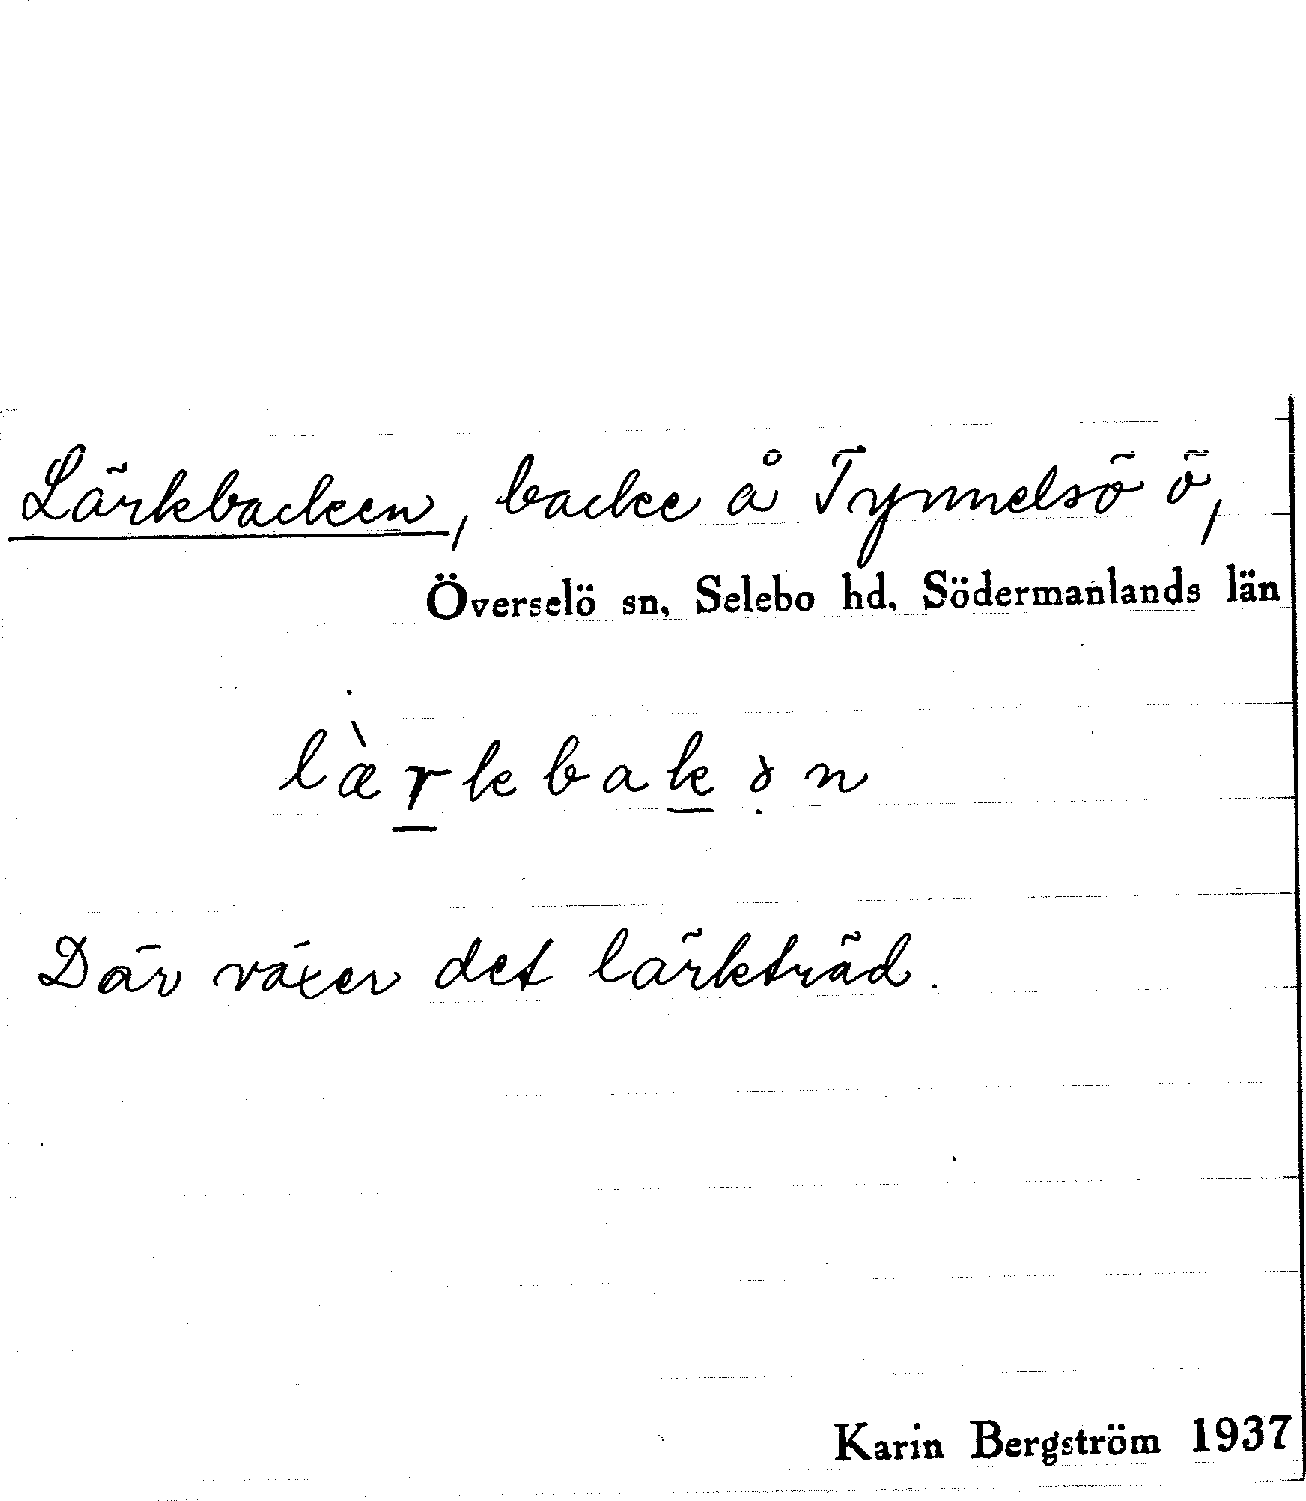 Lärkbacken, backe å Tynnelsö ö,
Överselö sn, Selebo hd, Södermanlands län
læ̀r̲kbak̲ən
Där växer det lärkträd.
Karin Bergström 1937